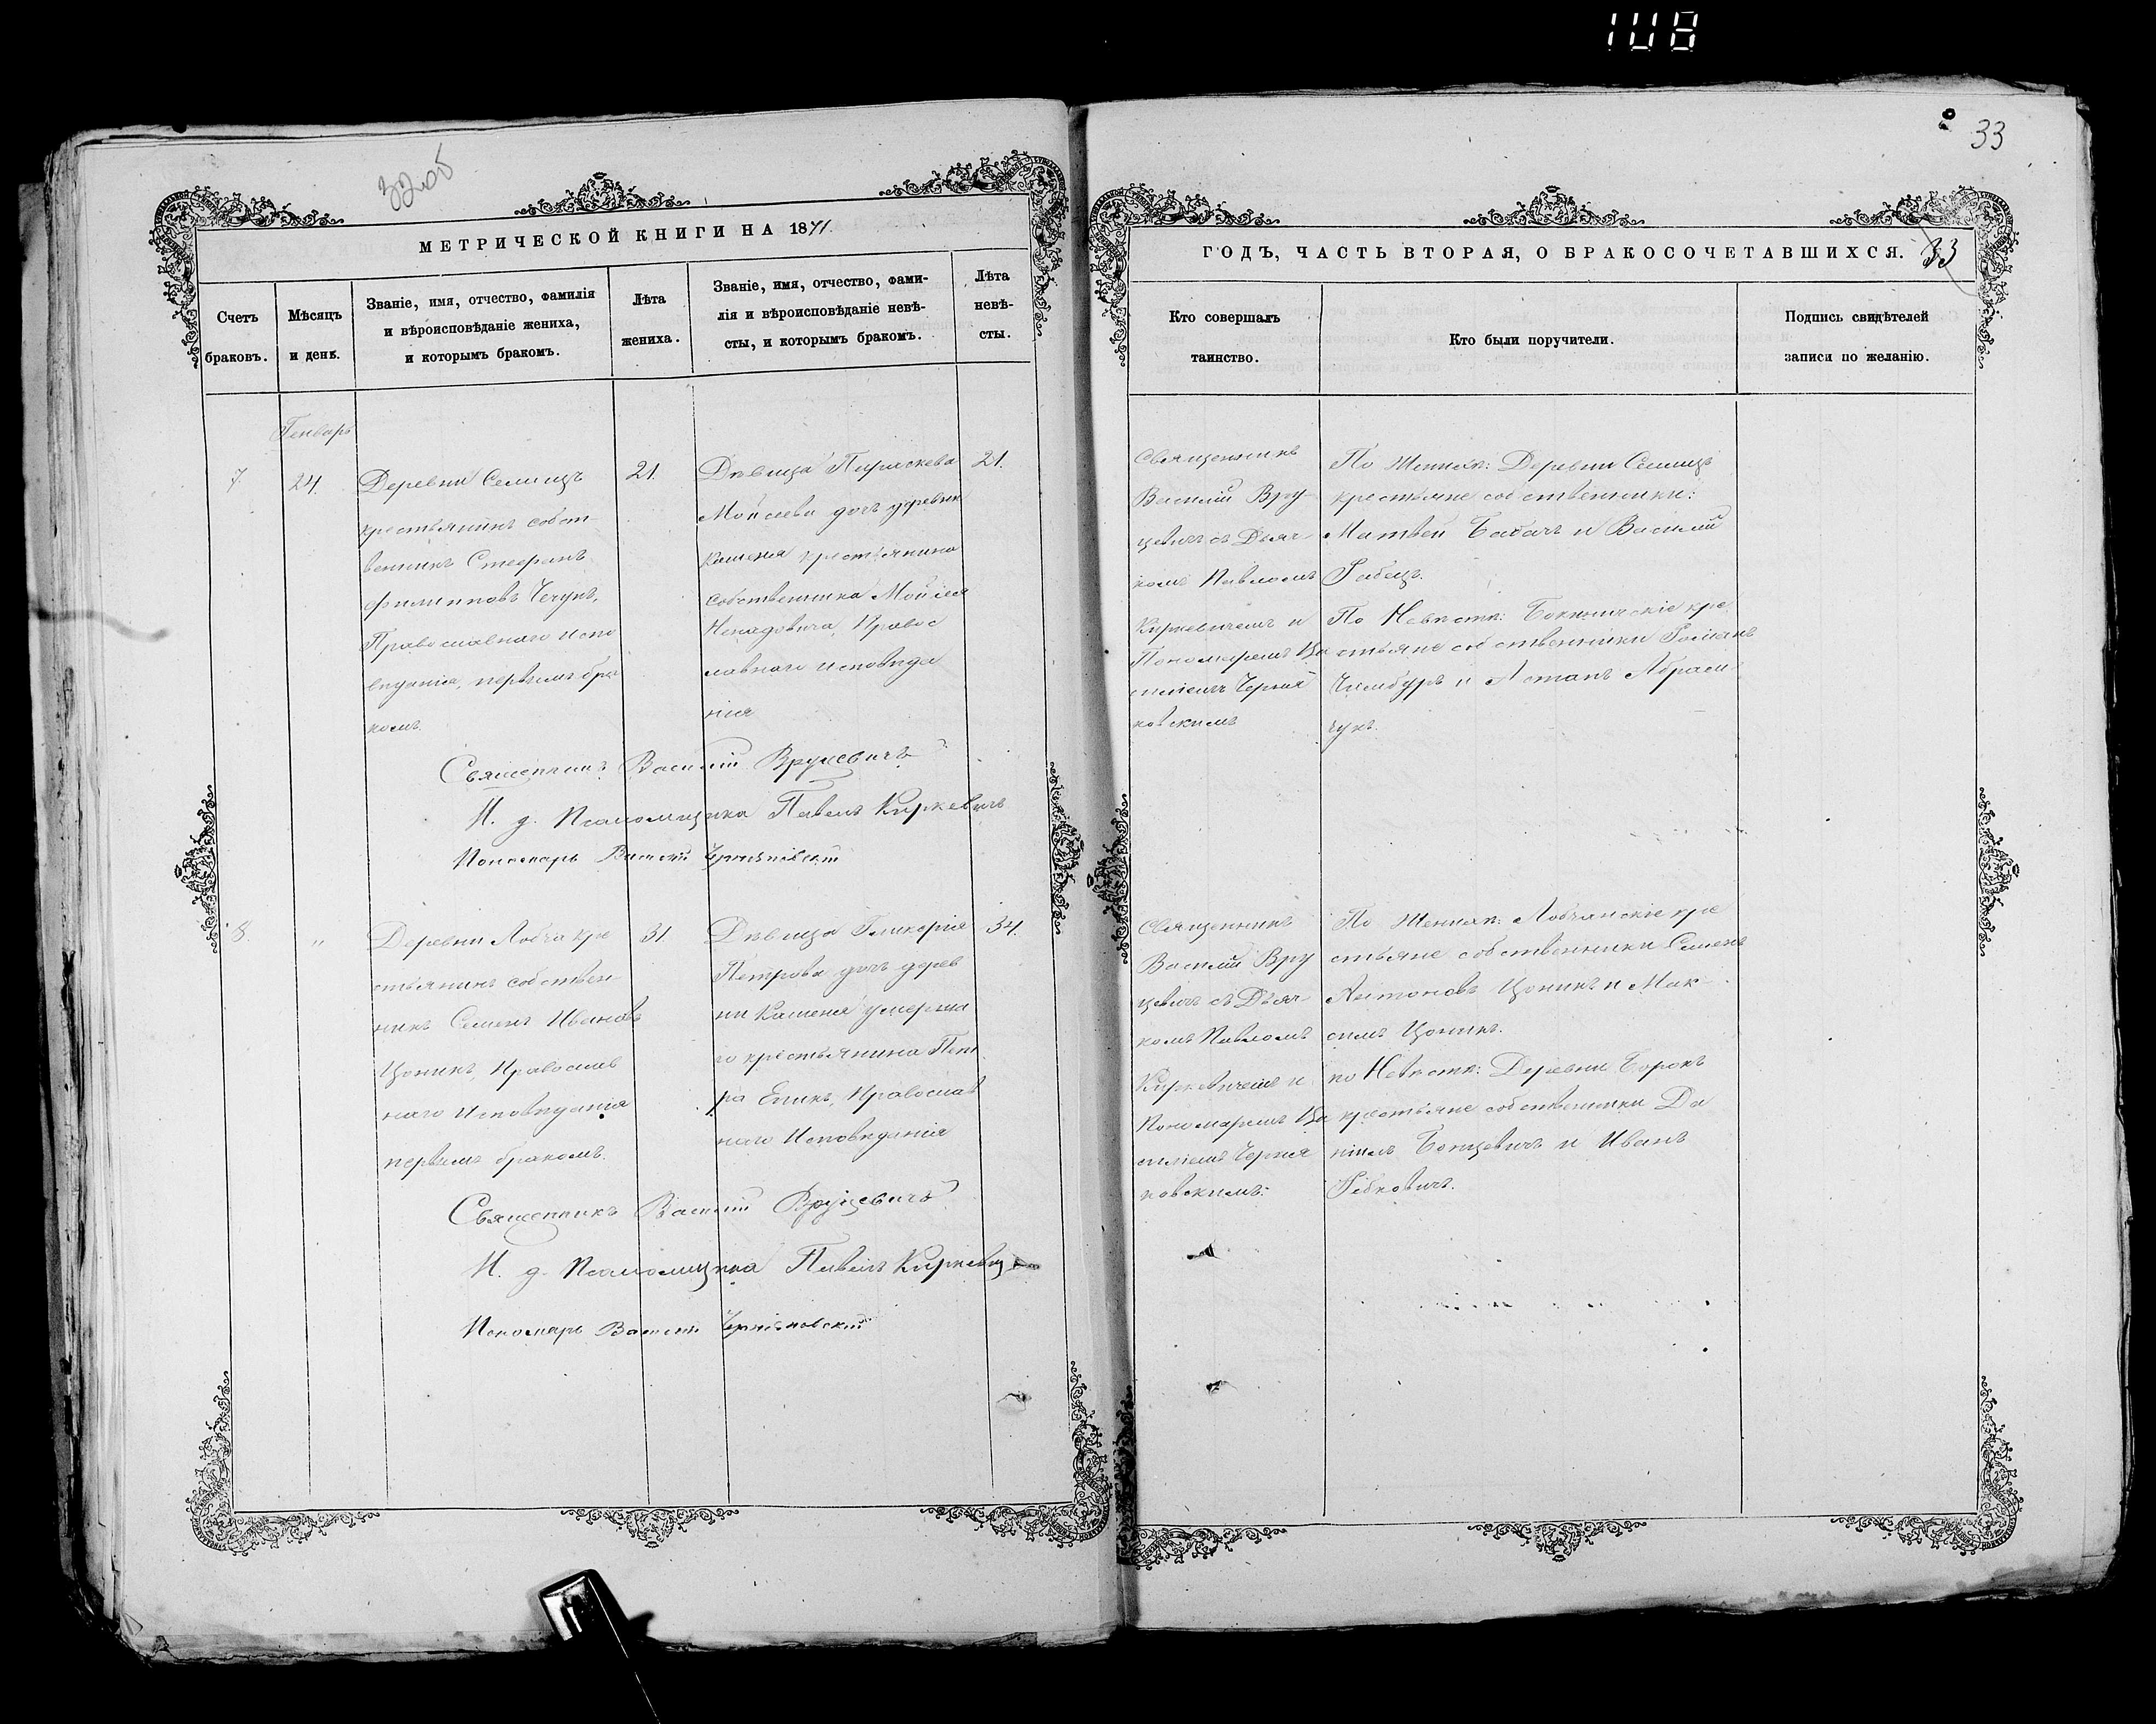 108
32об
МЕТРИЧЕСКОЙ КНИГИ НА 1871.
Счетъ
браковъ.
Мѣсяцъ
и день.
Званіе, имя, отчество, фамилія
и вѣроисповѣданіе жениха,
и которымъ бракомъ.
Лѣта
жениха.
Званіе, имя, отчество, фами-
лія и вѣроисповѣданіе невѣ-
сты, и которымъ бракомъ.
Лѣта
невѣ-
сты.
Генварь
7.
24.
Деревни Селищъ
крестьянинъ собст-
венникъ Стефанъ
Филипповъ Чечукъ,
Православнаго испо
вѣданія, первымъ бра
комъ.
21.
Дѣвица Параскева
Мойсеева дочь деревни
Каменя крестьянина
собственника Мойсея
Ненадовича, Правос
лавнаго исповѣда
нія
21.
Священникъ Василій Вруцевичъ
И. д. Псаломщика Павелъ Киркевичъ
Пономарь Василій Черняковскій
8.
"
Деревни Лобча кре
стьянинъ собствен-
никъ Семенъ Ивановъ
Цоникъ, Православ
наго Исповѣданія
первымъ бракомъ.
31
Дѣвица Гликерія
Петрова дочь дерев
ни Каменя умерша
го крестьянина Пет
ра Еникъ, Православ
наго Исповѣданія
34.
Священникъ Василій Вруцевичъ
И. д. Псаломщика Павелъ Киркевич
Пономарь Василій Черняковскій
33
ГОДЪ, ЧАСТЬ ВТОРАЯ, О БРАКОСОЧЕТАВШИХСЯ. 33
Кто совершалъ
таинство.
Кто были поручители.
Подпись свидѣтелей
записи по желанію.
Священникъ
Василій Вру-
цевичъ съ Дьяч-
комъ Павломъ
Киркевичемъ и
Пономаремъ Ва
силіемъ Черня
ковскимъ
По Женихѣ: Деревни Селищъ
крестьяне собственники:
Матвей Бабачъ и Василій
Рабецъ.
По Невѣстѣ: Бокиничскіе кре
стьяне собственники Романъ
Чимбуръ и Астапъ Абрам-
чукъ.
Священникъ
Василій Вру
цевичъ съ Дьяч-
комъ Павломъ
Киркевичемъ и
Пономаремъ Ва
силіемъ Черня
ковскимъ:
По Женихѣ: Лобчанскіе кре
стьяне собственники Семенъ
Антоновъ Цоникъ и Мак-
симъ Цоникъ.
по Невѣстѣ: Деревни Борокъ
крестьяне собственники Да
ніилъ Бонцевичъ и Иванъ
Рабковичъ.